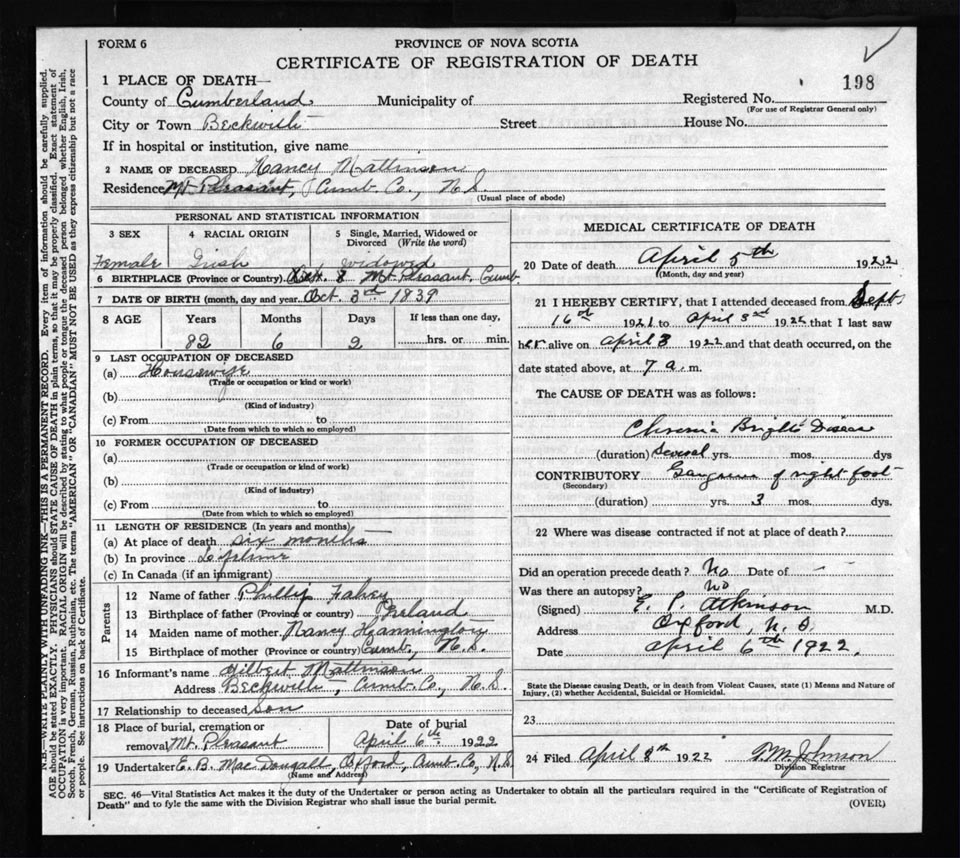 FORM 6
PROVINCE OF NOVA SCOTIA
CERTIFICATE OF REGISTRATION OF DEATH
1 PLACE OF DEATH—
198
County of Cumberland Municipality of Registered No.
(For use of Registrar General only)
City or Town Beckwith Street House No.
If in hospital or institution, give name
2 NAME OF DECEASED Nancy Mattinson
Residence Mt. Pleasant, Cumb. Co., N.S.
(Usual place of abode)
PERSONAL AND STATISTICAL INFORMATION
3 SEX 4 RACIAL ORIGIN 5 Single, Married, Widowed or Divorced (Write the word)
Female Irish widowed
6 BIRTHPLACE (Province or Country) Mt. Pleasant, Cumb.
7 DATE OF BIRTH (month, day and year) Oct. 3rd 1839
8 AGE Years Months Days If less than one day,
82 6 2 hrs. or min.
9 LAST OCCUPATION OF DECEASED
(a) Housewife
(Trade or occupation or kind or work)
(b)
(Kind of industry)
(c) From to
(Date from which to which so employed)
10 FORMER OCCUPATION OF DECEASED
(a)
(Trade or occupation or kind or work)
(b)
(Kind of industry)
(c) From to
(Date from which to which so employed)
11 LENGTH OF RESIDENCE (In years and months)
(a) At place of death six months
(b) In province Lifetime
(c) In Canada (if an immigrant)
Parents
12 Name of father Phillip Fahey
13 Birthplace of father (Province or country) Ireland
14 Maiden name of mother Nancy Hannington
15 Birthplace of mother (Province or country) Cumb., N.S.
16 Informant's name Gilbert Mattinson
Address Beckwith, Cumb. Co., N.S.
17 Relationship to deceased Son
18 Place of burial, cremation or removal Mt. Pleasant Date of burial April 6th 1922
19 Undertaker E. B. MacDougall, Oxford, Cumb. Co., N.S.
(Name and Address)
MEDICAL CERTIFICATE OF DEATH
20 Date of death April 5th 1922
(Month, day and year)
21 I HEREBY CERTIFY, that I attended deceased from Sept.
16th 1921 to April 3rd 1922 that I last saw
her alive on April 3 1922 and that death occurred, on the
date stated above, at 7 a. m.
The CAUSE OF DEATH was as follows:
Chronic Brights Disease
(duration) Several yrs. mos. dys
CONTRIBUTORY Gangrene of right foot
(Secondary)
(duration) yrs. 3 mos. dys.
22 Where was disease contracted if not at place of death?
Did an operation precede death? No Date of —
Was there an autopsy? No
(Signed) E. P. Atkinson M.D.
Address Oxford, N.S
Date April 6th 1922.
State the Disease causing Death, or in death from Violent Causes, state (1) Means and Nature of
Injury, (2) whether Accidental, Suicidal or Homicidal.
23
24 Filed April 8th 1922 T. M. Johnson
Division Registrar
SEC. 46—Vital Statistics Act makes it the duty of the Undertaker or person acting as Undertaker to obtain all the particulars required in the "Certificate of Registration of
Death" and to fyle the same with the Division Registrar who shall issue the burial permit.
(OVER)
N.B.—WRITE PLAINLY WITH UNFADING INK—THIS IS A PERMANENT RECORD. Every item of information should be carefully supplied.
AGE should be stated EXACTLY. PHYSICIANS should STATE CAUSE OF DEATH in plain terms, so that it may be properly classified. Exact statement of
OCCUPATION is very important. RACIAL ORIGIN will be described by stating to what people or tongue the deceased person belonged whether English, Irish,
Scotch, French, German, Russian, Ruthenian, etc. The terms "AMERICAN" OR "CANADIAN" MUST NOT BE USED as they express citizenship but not a race
or people. See instructions on back of Certificate.